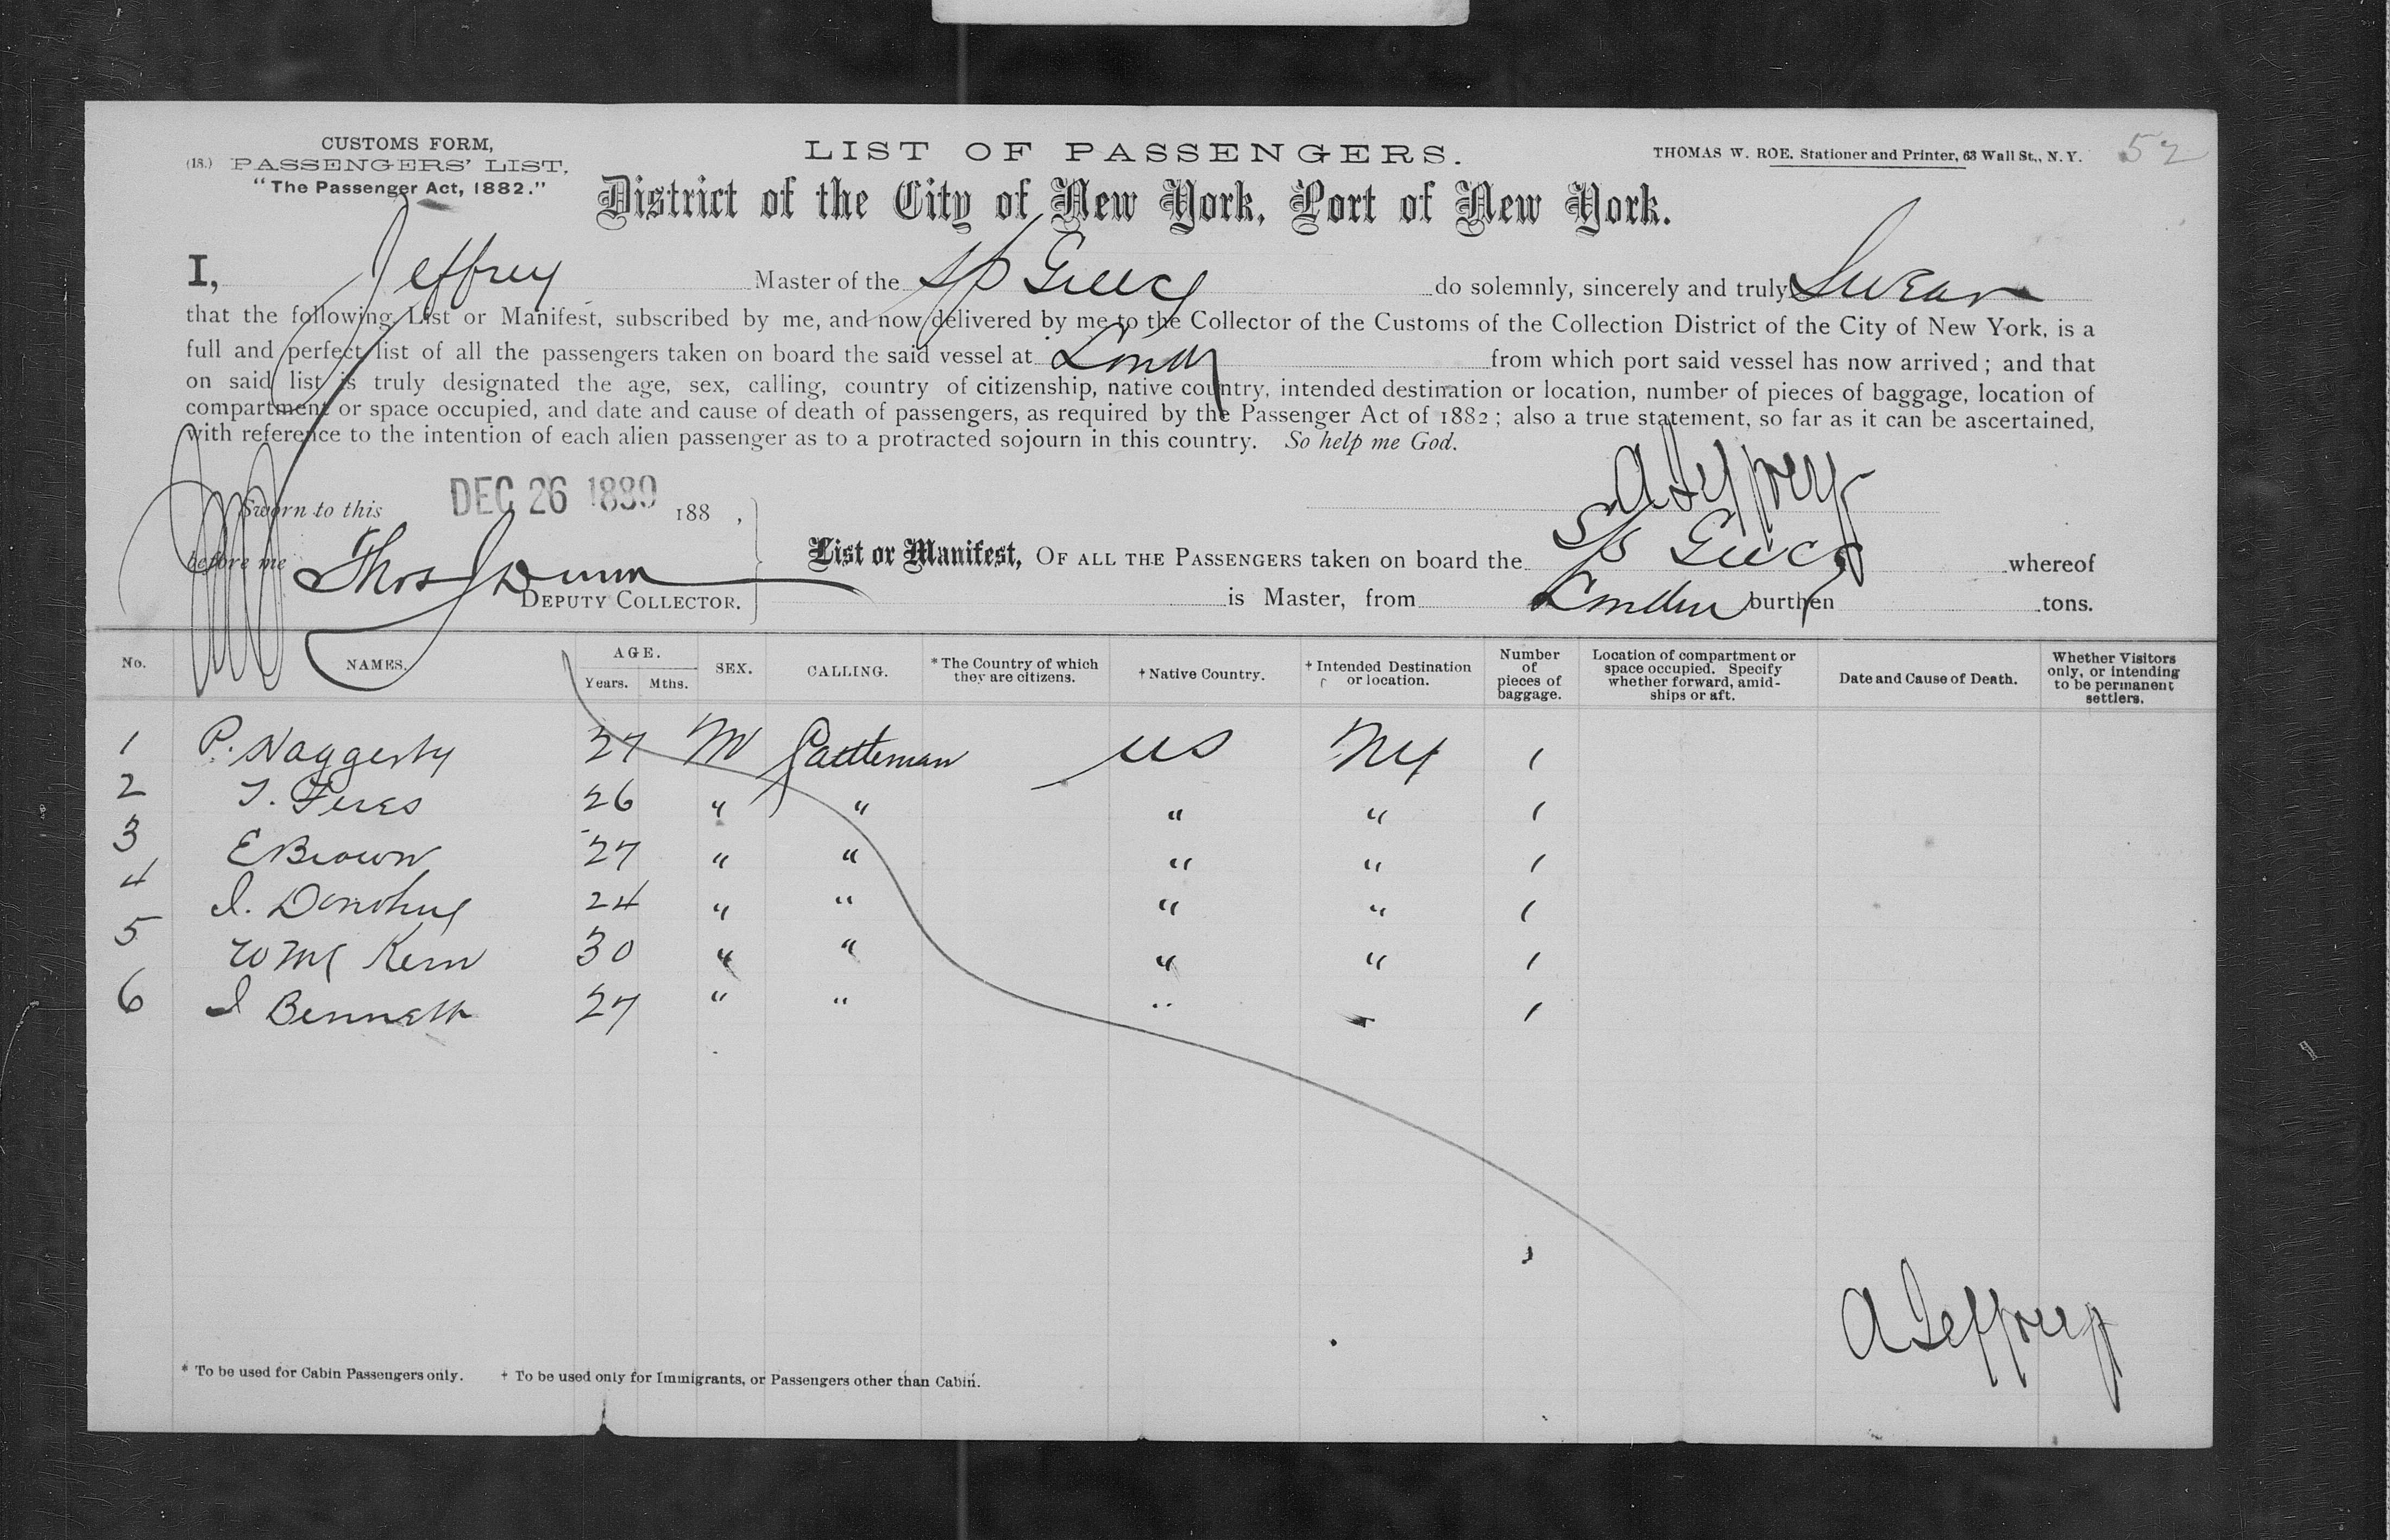 CUSTOMS FORM,
(18.) PASSENGERS' LIST,
"The Passenger Act, 1882."
LIST OF PASSENGERS.
THOMAS W. ROE, Stationer and Printer, 63 Wall St., N. Y.
52
District of the City of New York, Port of New York.
I, Jeffrey Master of the S/S Greece do solemnly, sincerely and truly Swear
that the following List or Manifest, subscribed by me, and now delivered by me to the Collector of the Customs of the Collection District of the City of New York, is a
full and perfect list of all the passengers taken on board the said vessel at from which port said vessel has now arrived; and that
on said list is truly designated the age, sex, calling, country of citizenship, native country, intended destination or location, number of pieces of baggage, location of
compartment or space occupied, and date and cause of death of passengers, as required by the Passenger Act of 1882; also a true statement, so far as it can be ascertained,
with reference to the intention of each alien passenger as to a protracted sojourn in this country. So help me God.
A Jeffrey
Sworn to this DEC 26 1889 188 ,
before me Thos J Dunn
DEPUTY COLLECTOR.
List or Manifest, OF ALL THE PASSENGERS taken on board the S/S Greece whereof
is Master, from London burthen tons.
No. NAMES. AGE. Years. Mths. SEX. CALLING. * The Country of which they are citizens. † Native Country. † Intended Destination or location. Number of pieces of baggage. Location of compartment or space occupied. Specify whether forward, amid-ships or aft. Date and Cause of Death. Whether Visitors only, or intending to be permanent settlers.
1 P. Haggerty 27 M Cattleman US NY 1
2 T. 26 " " " " 1
3 E Brown 27 " " " " 1
4 J. Donohue 24 " " " " 1
5 W Mc Kern 30 " " " " 1
6 J Bennett 27 " " " " 1
A Jeffrey
* To be used for Cabin Passengers only. † To be used only for Immigrants, or Passengers other than Cabin.